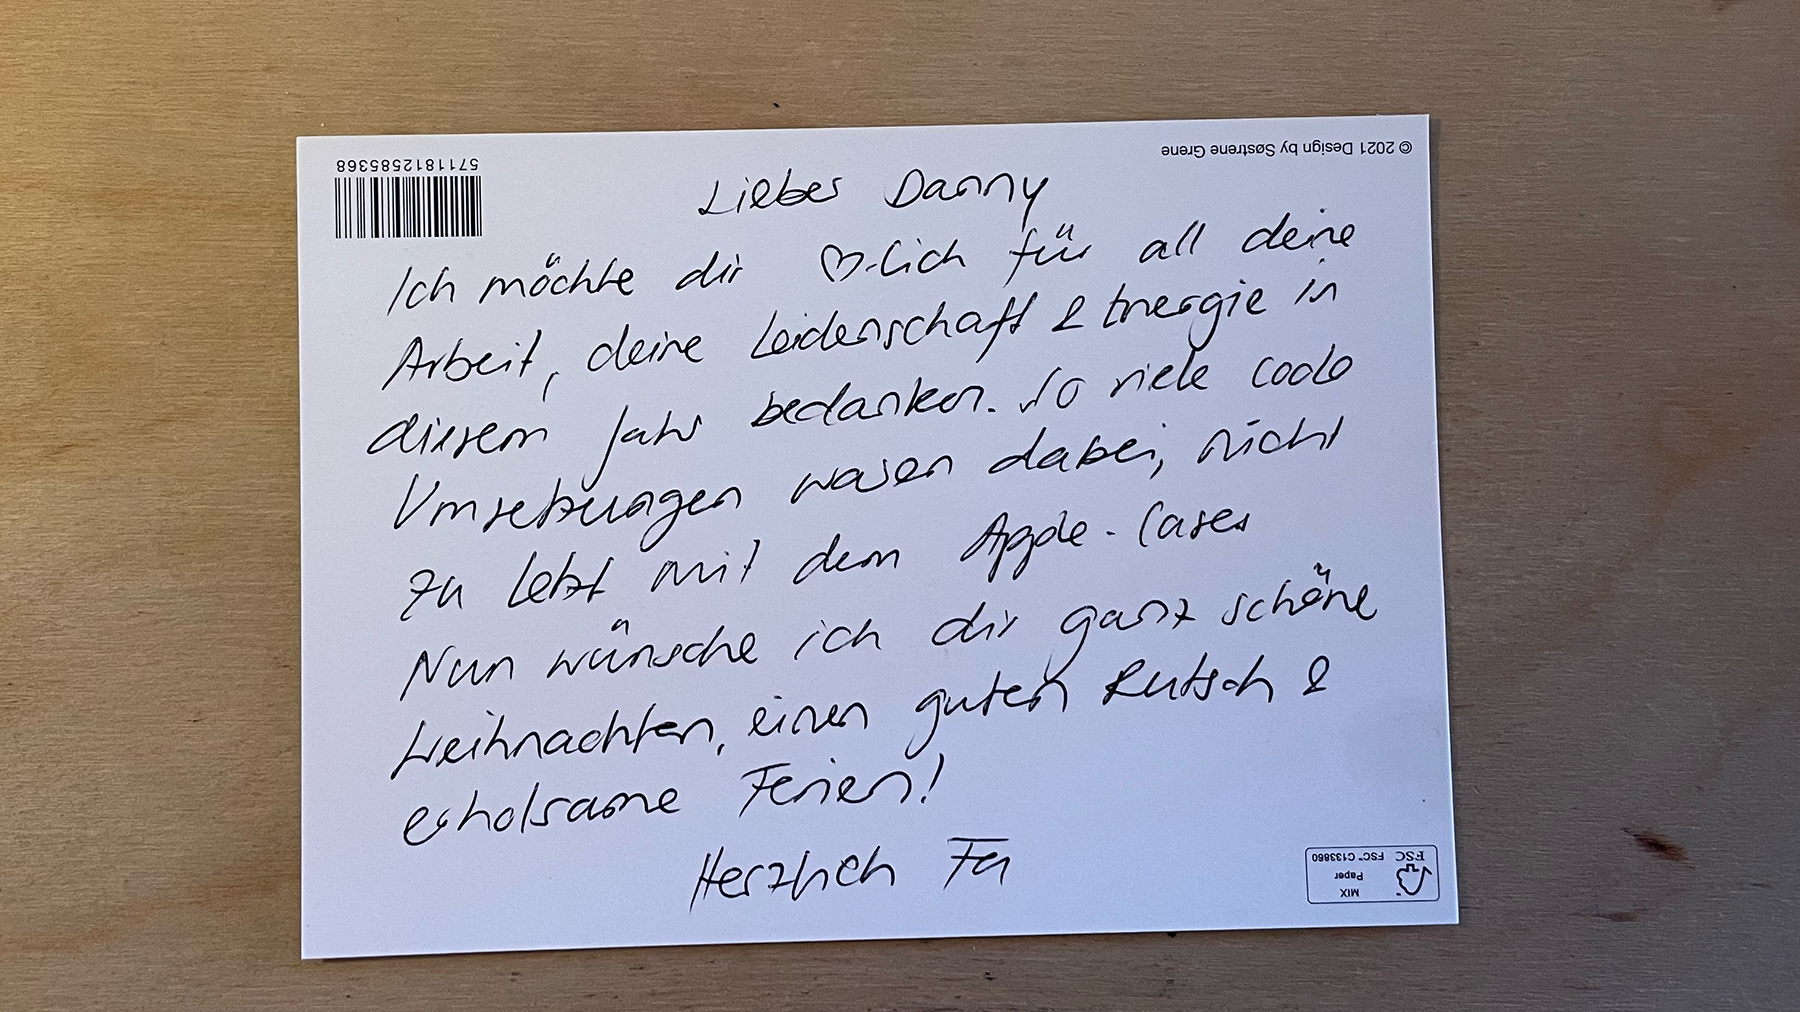 © 2021 Design by Søstrene Grene
5711812585368
Lieber Danny
Ich möchte dir ♡-lich für all deine
Arbeit, deine Leidenschaft & Energie in
diesem Jahr bedanken. So viele coole
Umsetzungen waren dabei, nicht
zu letzt mit dem Apple-Cases
Nun wünsche ich dir ganz schöne
Weihnachten, einen guten Rutsch &
erholsame Ferien!
Herzlich
MIX
Paper
FSC FSC™ C133860